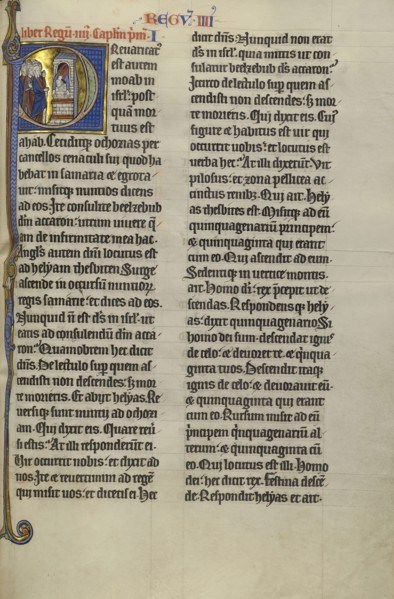 REGV IIII
Liber Regū iiij. Caplm pm. I
Revaricat᷒
est autem
moab in
isrl. post
quā mor
tuus est
ahab. Ceciditq; ochozias per
cancellos cenaculi sui quod ha
bebat in samaria & egrota
uit: misitq; nuntios dicens
ad eos. Ite consulite beelzebub
dm accaron: utrum uiuere q̄
am de infirmitate mea hac.
Angls autem dm̄ locutus est
ad helyam thesbiten. Surge
ascende in occursum nuntioꝝ
regis samarie: et dices ad eos.
Nunquid n̄ est ds in isrl. ut
eatis ad consulendū dm accа
ron: Quamobrem hec dicit
dm̄s. De lectulo sup quem as
cendisti non descendes: sʒ mor
te morieris. Et abijt helyas. Re
uersiq; sunt nuntij ad ochozi
am. Qui dixit eis. Quare reu
si estis: At illi responderūt ei.
Vir occurrit nobis: et dixit ad
nos. Ite & reuertimini ad regē
qui misit uos: et dicetis ei. Hec
dicit dm̄s. Nunquid non erat
ds in isrl. quia mittis ut con
sulatur beelzebub ds accaron:
Iccirco de lectulo sup quem as
cendisti non descendes: sʒ mor
te morieris. Qui dixit eis. Cui᷒
figure & habitus est uir qui
occurrit uobis: et locutus est
uerba hec: At illi dixerunt. Vir
pilosus: et zona pellicea ac
cinctus renibʒ. Qui ait. Hely
as thesbites est. Misitq; ad eū
quinquagenariū principem:
& quinquaginta qui erant
cum eo. Qui ascendit ad eum.
Sedentiq; in uertice montis.
ait. Homo di: rex p̄cepit ut de
scendas. Respondensq; hely
as: dixit quinquagenario. Si
homo dei sum: descendat ignis
de celo: & deuoret te. & q̄nqua
ginta tuos. Descendit itaq;
ignis de celo: & deuorauit eū:
& quinquaginta qui erant
cum eo. Rursum misit ad eū
p̄ncipem q̄nquagenariū al
terum: & quinquaginta cū
eo. Qui locutus est illi. Homo
dei: hec dicit rex. Festina descē
de. Respondit helyas et ait.